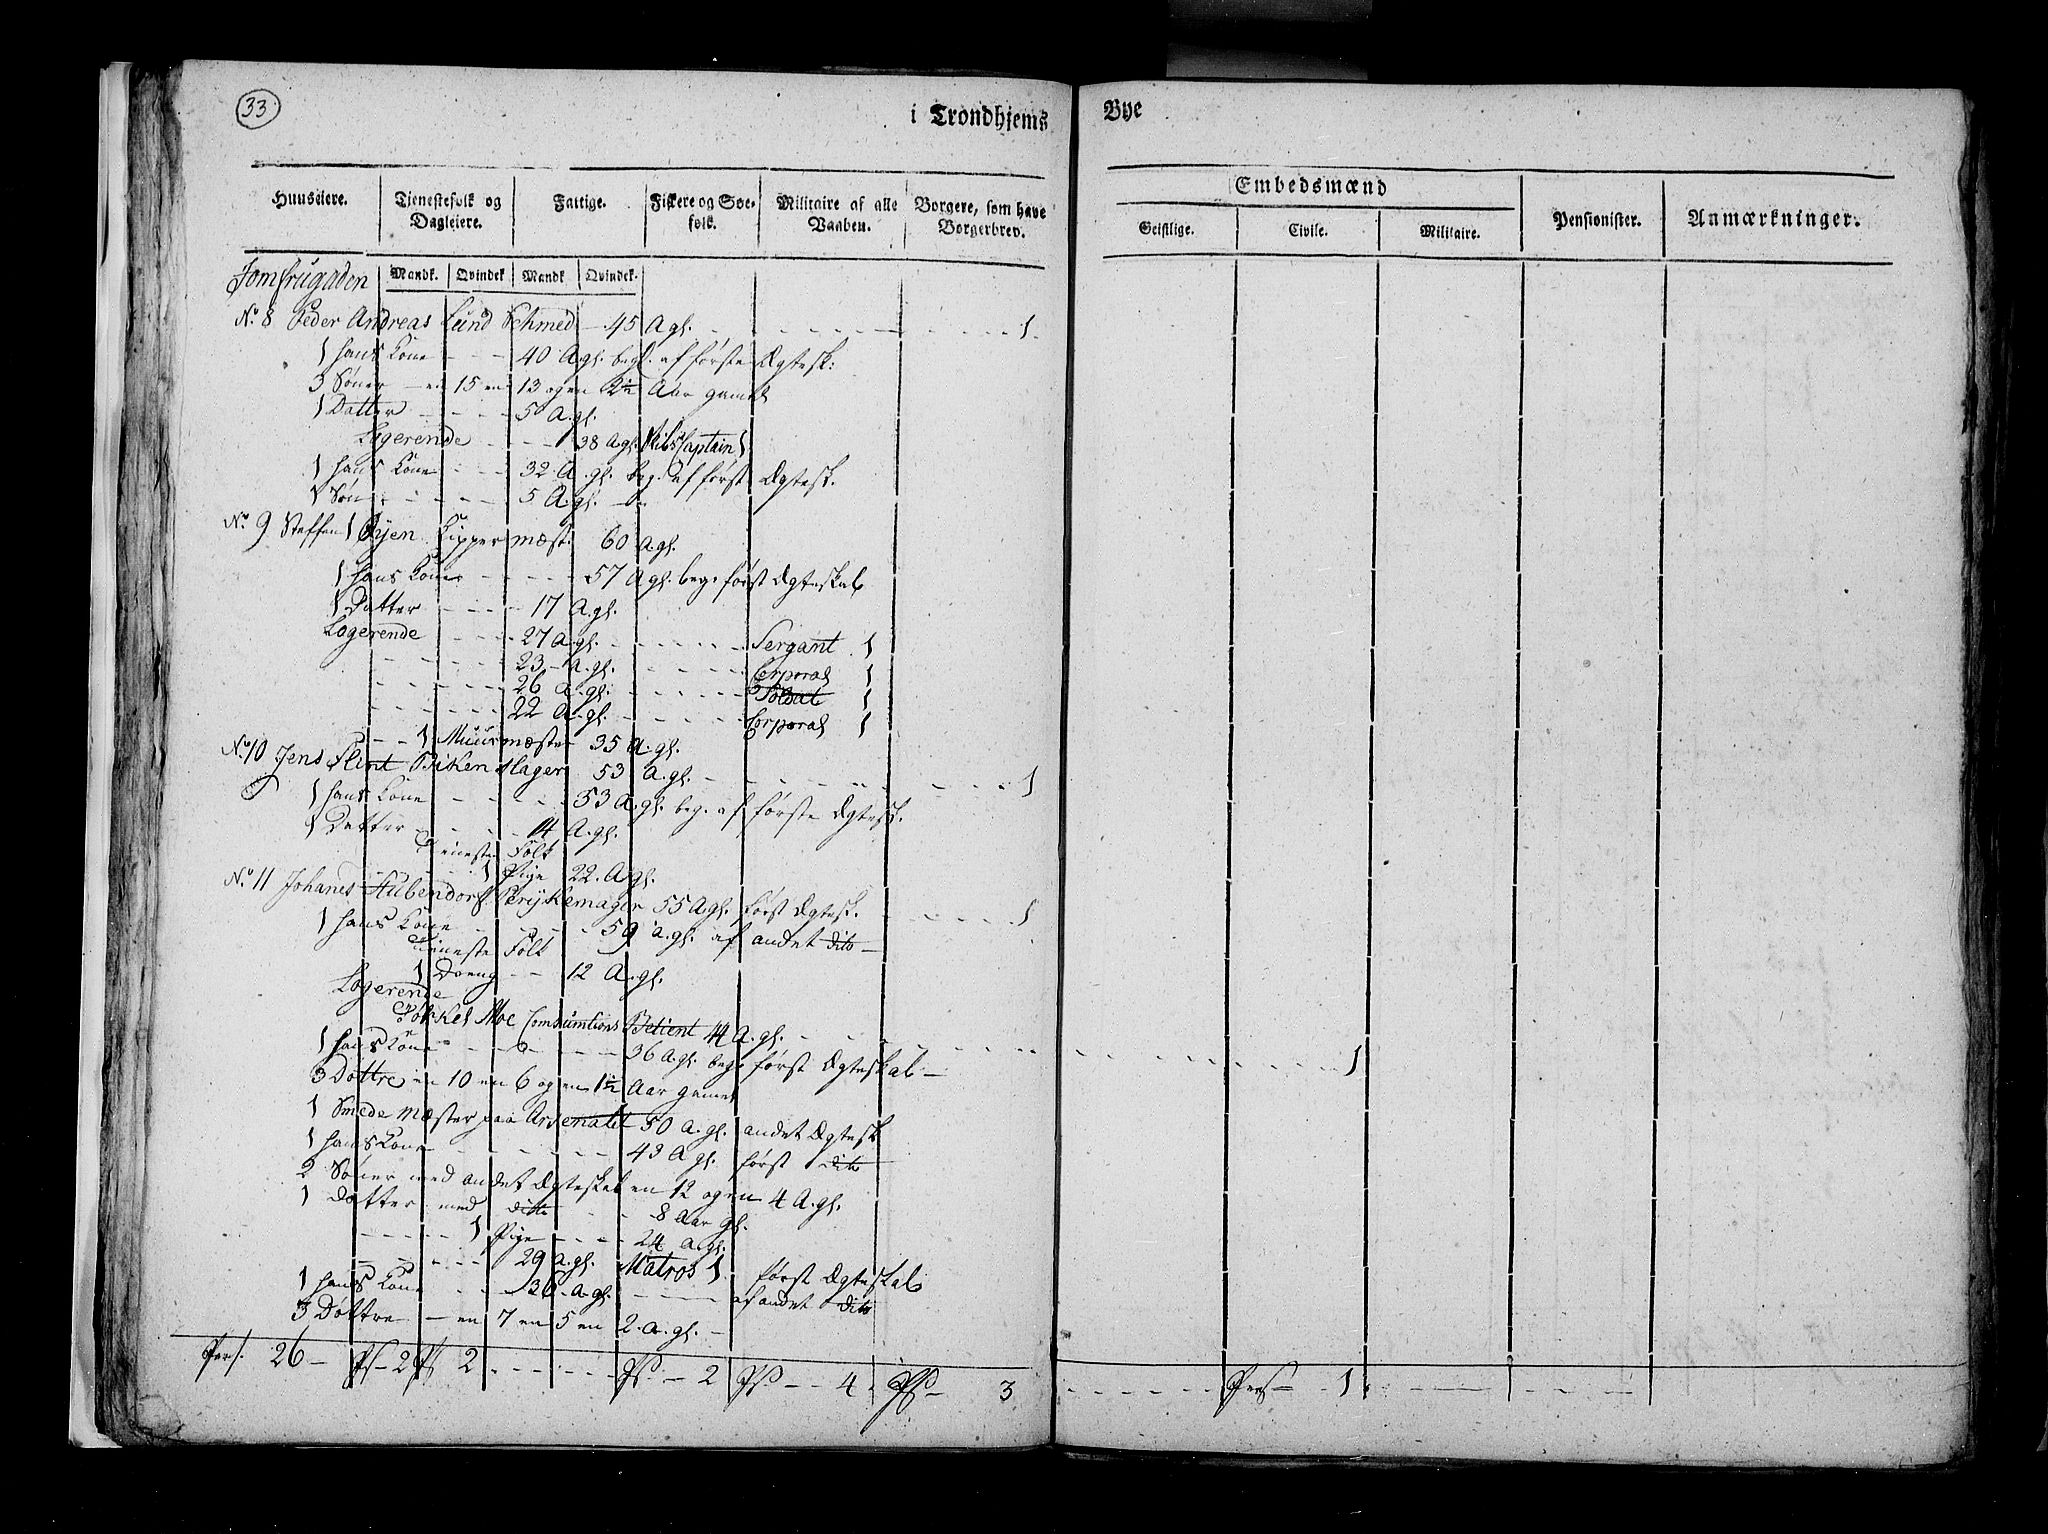 33.
i Trondhjems Bye
Huuseiere. Tjenestefolk og Dagleiere. Fattige. Fiskere og Søefolk. Militaire af alle Vaaben. Borgere, som have Borgerbrev. Embedsmænd Geistlige. Civile. Militaire. Pensionister. Anmærkninger.
Mandk. Qvindek Mandk Qvindek.
Jomfrugaden
No. 8 Peder Andreas Lund Schmed - 45 A gl. 1.
1 hans Kone - - - 40 A gl. beg. af første Ægtesk:
3 Sønner - en 15 en 13 og en 2½ Aar gamel
1 Datter - - - - 5 A. gl.
Logerende - - - - 38 A gl. Skibs Captain 1
1 hans Kone - - - 32 A. gl. beg. af først Ægtesk.
1 Søn - - - - 5 A. gl.
No. 9 Steffen Øyen Kippermæst: 60 A gl.
1 hans Kone - - - - - 57 A gl. beg. først Ægteskab
1 Datter - - - - 17 A. gl.
Logerende - - - - 27 A gl. - - - - - Sergant 1
- - - - - 23 - A. gl. - - - - Corporal 1
- - - - - 26 a. gl. - - - - Soldat 1
- - - - - 22 A. gl. - - - - Corporal 1
- - 1 Muurmæster 35 A. gl.
No. 10 Jens Flint Bøken Mager 53 A. gl. 1
1 hans Kone - - - - 53 A. gl. beg. af første Ægtesk.
1 Datter - - - - 14 A. gl.
Tieneste Folk
1 Pige 22. A gl.
No. 11 Johanes Hubendorf Perykemager 55 A gl. først Ægtesk. 1
1 hans Kone - - - - - 59 a. gl. af andet dito -
Tieneste Folk
1 Dreng - - 12 A. gl.
Logerende
Tøkkel Moe Comsumtions Betient 44 A. gl.
1 hans Kone - - - - - 36 A gl. beg. først Ægteskab - 1
3 Døttre en 10 en 6 og en 1½ Aar gamel
1 Smede Mæster paa Arsenalet 50 A. gl. andet Ægtesk
1 hans Kone - - - - - 43 A gl. først dito
2 Sønner med andet Ægteskab en 12 og en 4 A. gl.
1 Datter med ditto - - 8 Aar gl.
- - - - - 1 Pige - - - - 24 a. gl.
- - - - - 29 a. gl. Matros 1 først Ægteskab
1 hans Kone - - - 36 - a. gl. af andet dito
3 Døttre - en 7 en 5 en 2. a. gl. -
Pers. 26 - Ps - 2 Ps 2 - - - - Ps - 2 Ps - - 4. Ps - 3 Pers - 1.